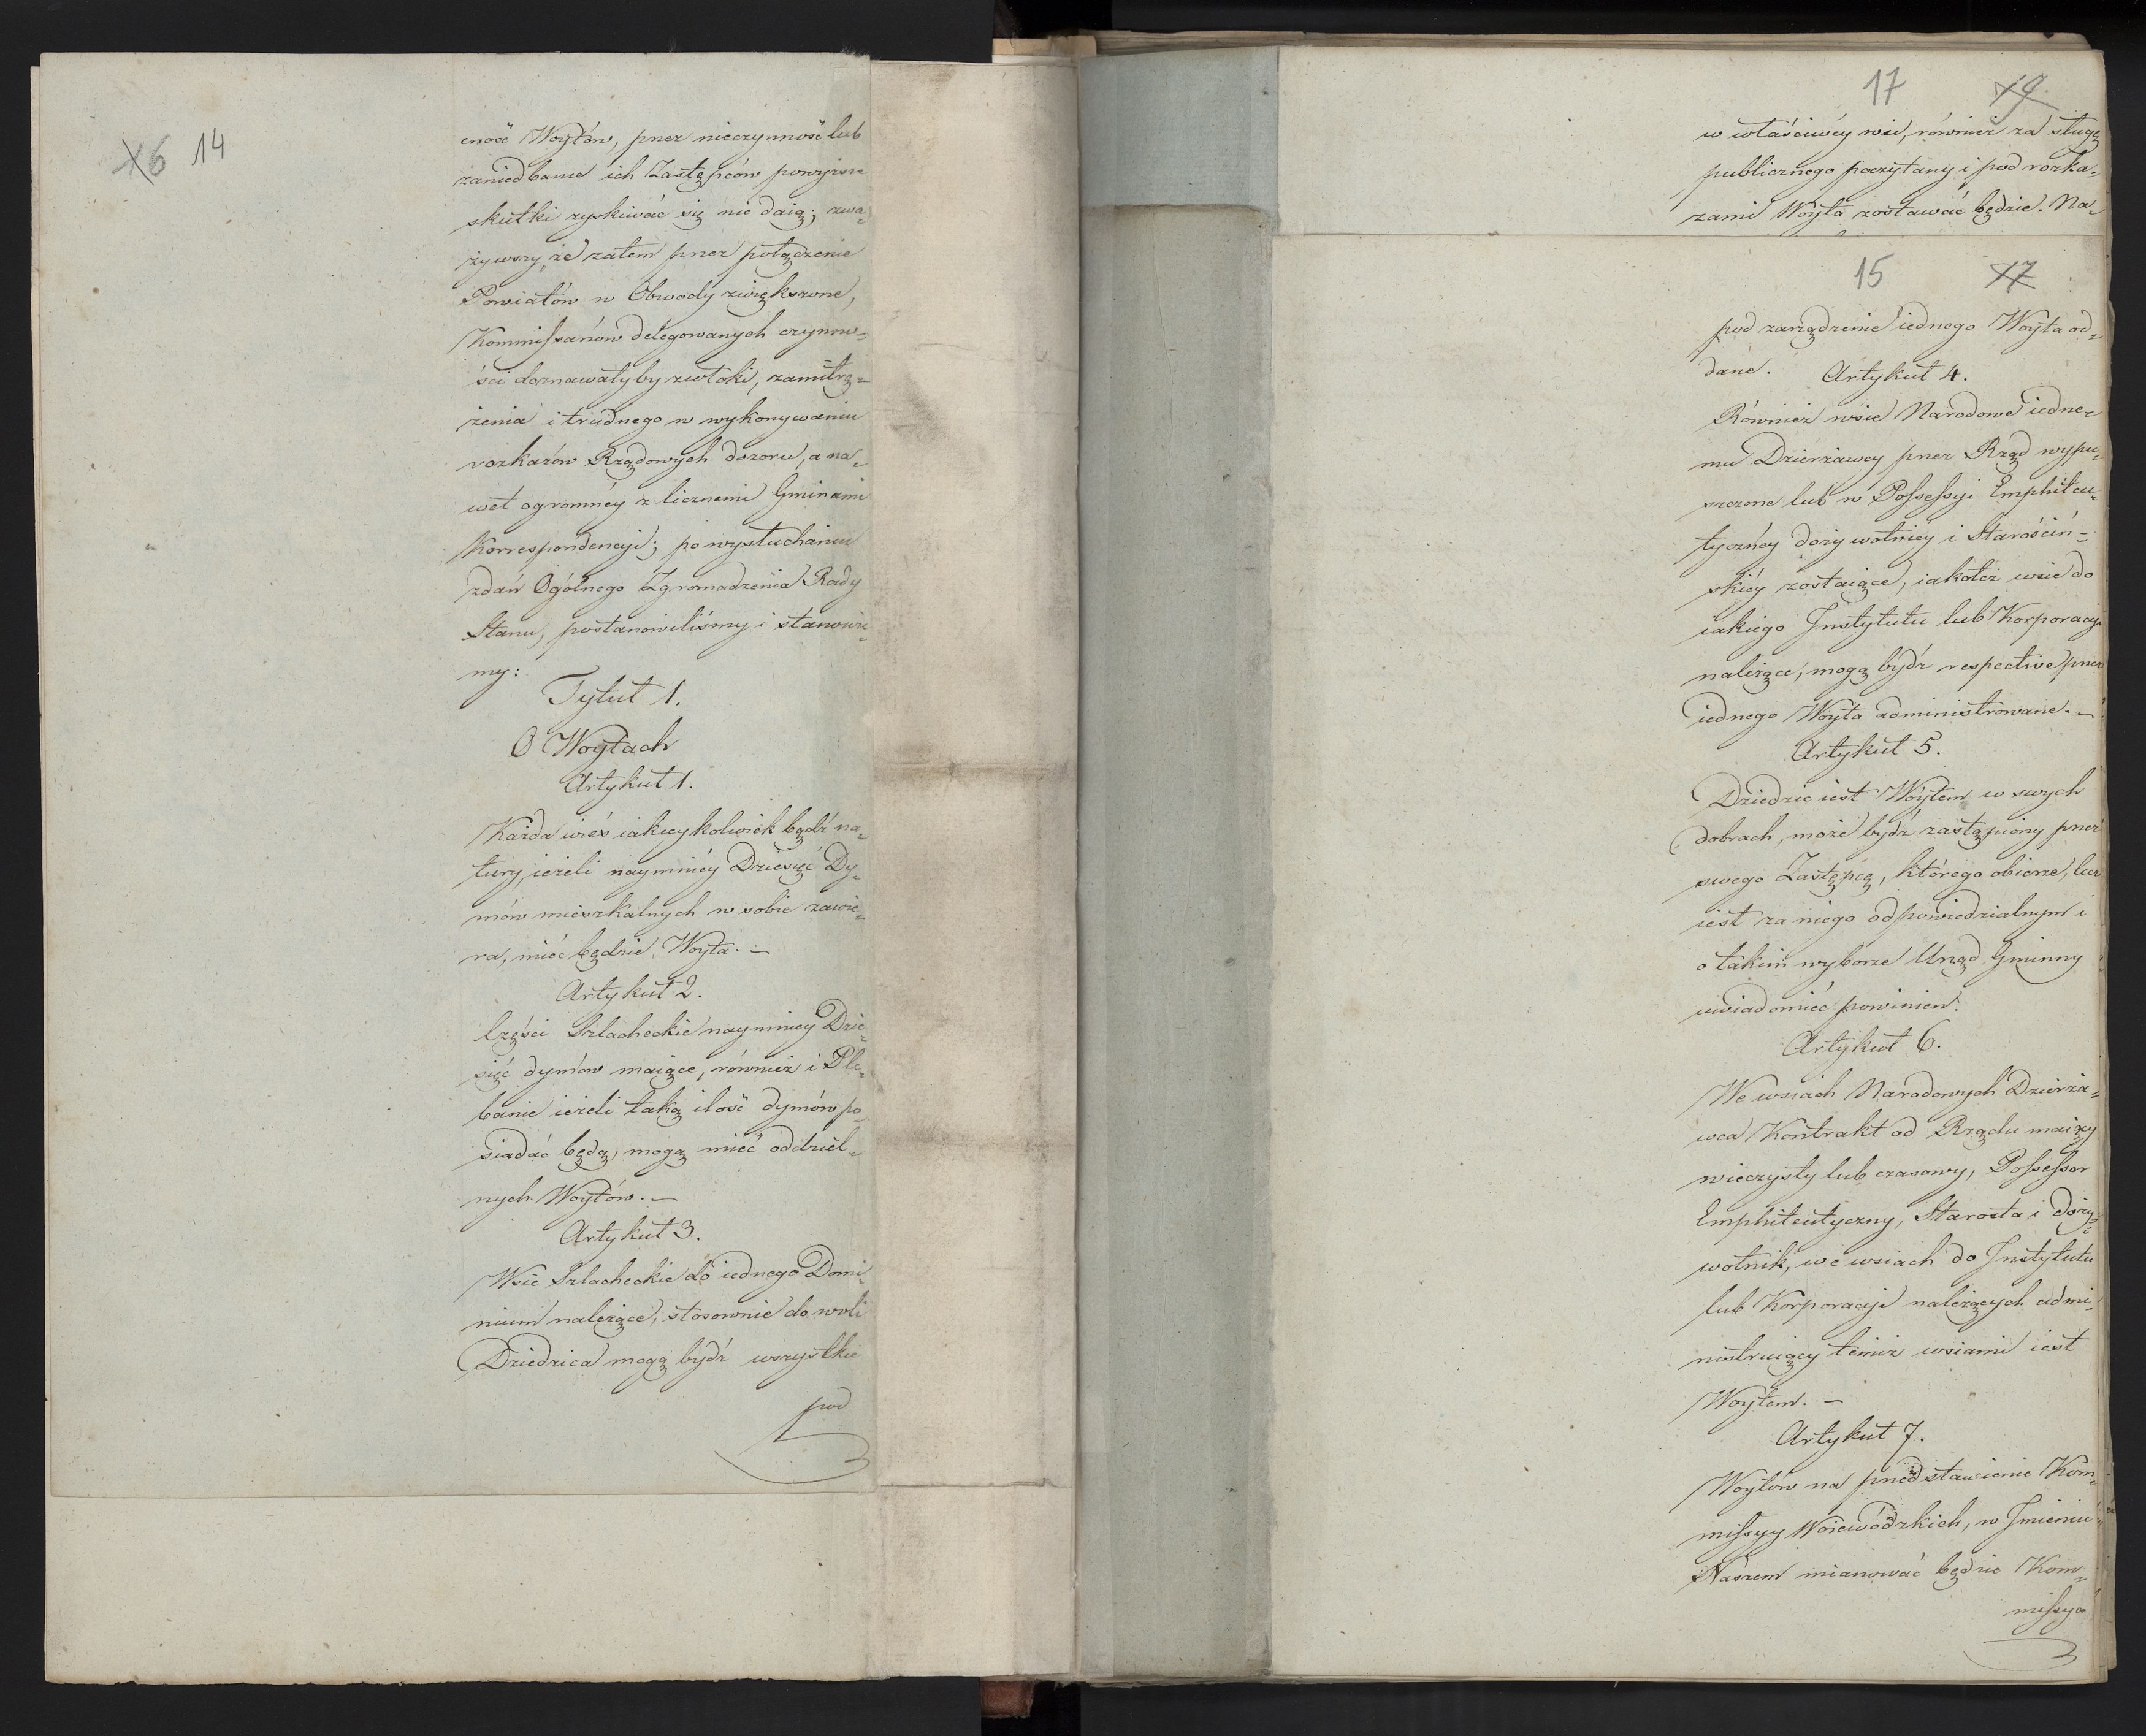 X6 14
cność Woytów, przez nieczynność lub
zaniedbanie ich Zastępców powyższe
skutki zyskiwać się nie daią; zwa-
żywszy, że zatem przez połączenie
Powiatów w Obwody zwiększone,
Kommissarzów delegowanych czynno-
ści doznawałyby zwłoki, zamitrę-
żenia i trudnego w wykonywaniu
rozkazów Rządowych dozoru, a na-
wet ogromnéy z licznemi Gminami
Korrespondencyi; po wysłuchaniu
zdań Ogólnego Zgromadzenia Rady
Stanu, postanowiliśmy i stanowi-
my:
Tytuł 1.
O Woytach
Artykuł 1.
Każda wieś iakieykolwiek bądź na-
tury, ieżeli naymniéy Dziesięć Dy-
mów mieszkalnych w sobie zawie-
ra, mieć będzie Woyta. —
Artykuł 2.
Części Szlacheckie naymniey Dzie-
sięć dymów maiące, również i Ple-
banie ieżeli taką ilość dymów po-
siadać będą, mogą mieć oddziel-
nych Woytów. —
Artykuł 3.
Wsie Szlacheckie do iednego Domi-
nium należące, stosownie do woli
Dziedzica mogą bydź wszystkie
pod
17 19
w właściwey wsi, również za sługę
publicznego poczytany i pod rozka-
zami Woyta zostawać będzie. Na-
15 17
pod zarządzenie iednego Woyta od-
dane.
Artykuł 4.
Również wsie Narodowe iedne-
mu Dzierżawcy przez Rząd wypu-
szczone lub w Possessyi Emphiteu-
tycznéy dożywotniéy i Starościń-
skiéy zostaiące, iakoteż wsie do
iakiego Instytutu lub Korporacyi
należące, mogą bydź respective przez
iednego Woyta administrowane. —
Artykuł 5.
Dziedzic iest Woytem w swych
dobrach, może bydź zastąpiony przez
swego Zastępcę, którego obierze, lecz
iest za niego odpowiedzialnym i
o takim wyborze Urząd Gminny
uwiadomić powinien.
Artykuł 6.
We wsiach Narodowych Dzierża-
wca Kontrakt od Rządu maiący
wieczysty lub czasowy, Possessor
Emphiteutyczny, Starosta i Doży-
wotnik, we wsiach do Instytutu
lub Korporacyi należących admi-
nistruiący temiż wsiami iest
Woytem. —
Artykuł 7.
Woytów na przedstawienie Kom-
missyy Woiewódzkich, w Imieniu
Naszem mianować będzie Kom-
missya